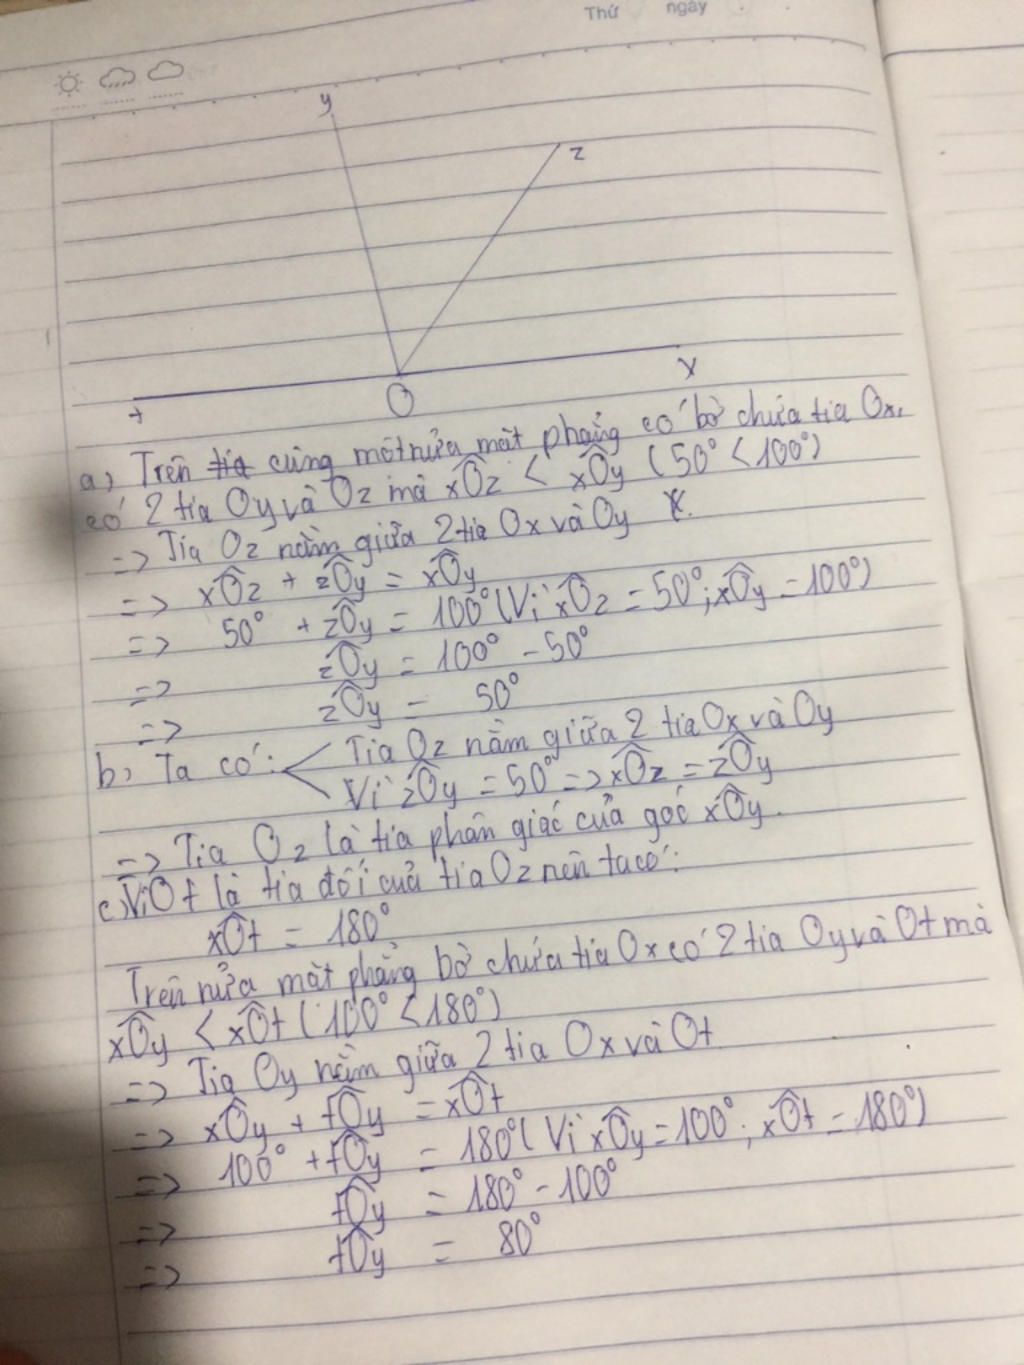 Thứ ngày
y
z
t
O
x
a) Trên tia cùng một nửa mặt phẳng có bờ chứa tia Ox,
có 2 tia Oy và Oz mà xÔz < xÔy (50° < 100°)
=> Tia Oz nằm giữa 2 tia Ox và Oy
=> xÔz + zÔy = xÔy
=> 50° + zÔy = 100° (Vì xÔz = 50°; xÔy = 100°)
=> zÔy = 100° - 50°
=> zÔy = 50°
b) Ta có: Tia Oz nằm giữa 2 tia Ox và Oy
Vì zÔy = 50° => xÔz = zÔy
=> Tia Oz là tia phân giác của góc xÔy.
c) Vì Ot là tia đối của tia Oz nên ta có:
xÔt = 180°
Trên nửa mặt phẳng bờ chứa tia Ox có 2 tia Oy và Ot mà
xÔy < xÔt (100° < 180°)
=> Tia Oy nằm giữa 2 tia Ox và Ot
=> xÔy + tÔy = xÔt
=> 100° + tÔy = 180° (Vì xÔy = 100°; xÔt = 180°)
=> tÔy = 180° - 100°
=> tÔy = 80°